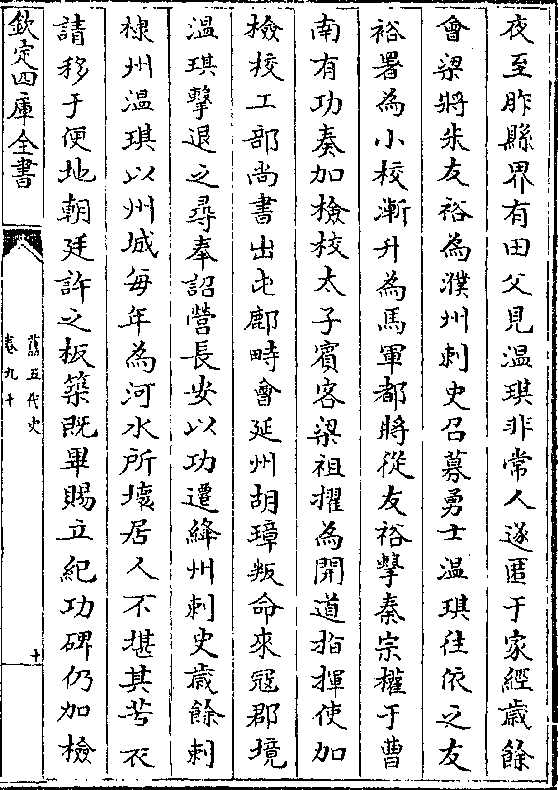 夜至胙縣界有田父見溫琪非常人遂匿于家經歲餘
會梁將朱友裕為濮州刺史召募勇士溫琪往依之友
裕署為小校漸升為馬軍都將從友裕擊秦宗權于曹
南有功奏加檢校太子賓客梁祖擢為開道指揮使加
檢校工部尚書出屯鄜畤會延州胡璋叛命來冦郡境
溫琪擊退之尋奉詔營長安以功遷絳州刺史歲餘刺
棣州溫琪以州城每年為河水所壞居人不堪其苦表
請移于便地朝廷許之板築既畢賜立紀功碑仍加檢
欽定四庫全書
舊五代史
卷九十
十